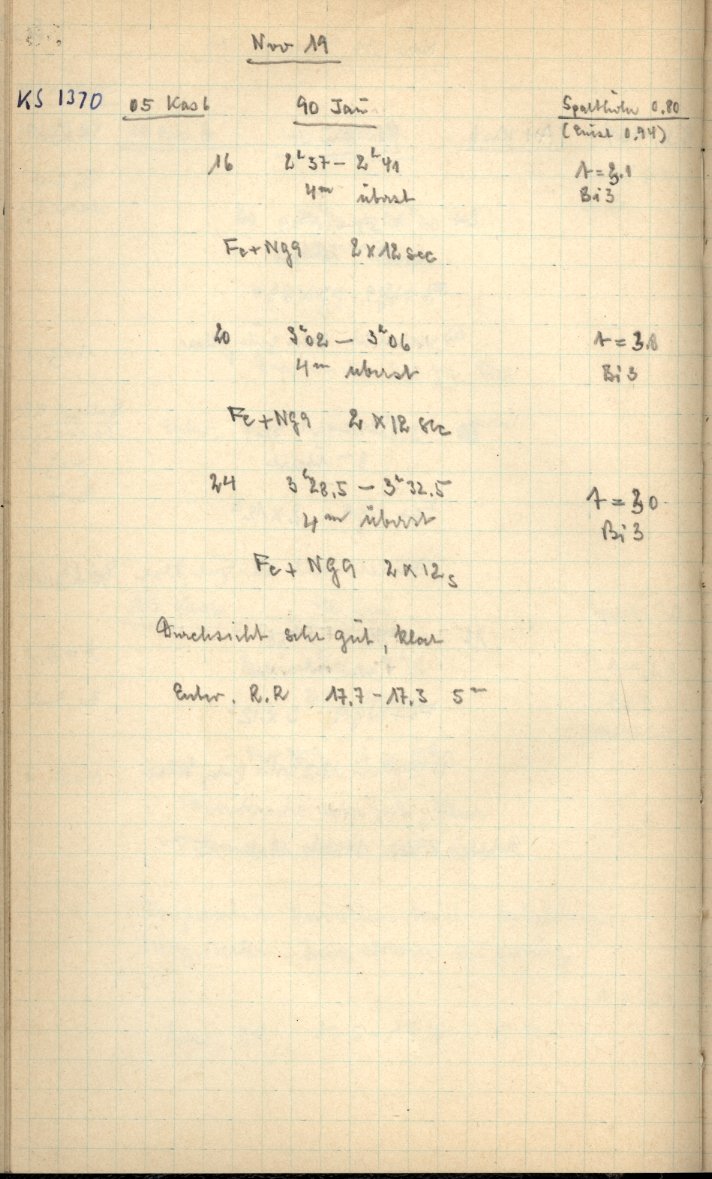 Nov 19
KS 1370 05 Kast 90 Jan Spalthöhe 0.80
(Einst 0,94)
16 2ʰ37 – 2ʰ41 t = 3.1
4ᵐ überst Bi 3
Fe + Ng9 2 x 12 sec
20 3ʰ02 – 3ʰ06
4ᵐ überst Bi 3
Fe + Ng9 2 x 12 sec
24 3ʰ28,5 – 3ʰ32.5 t = 3,0
4ᵐ überst Bi 3
Fe + Ng9 2 x 12 s
Durchsicht sehr gut, klar
Entw. R.R 17,7 – 17,3 5ᵐ